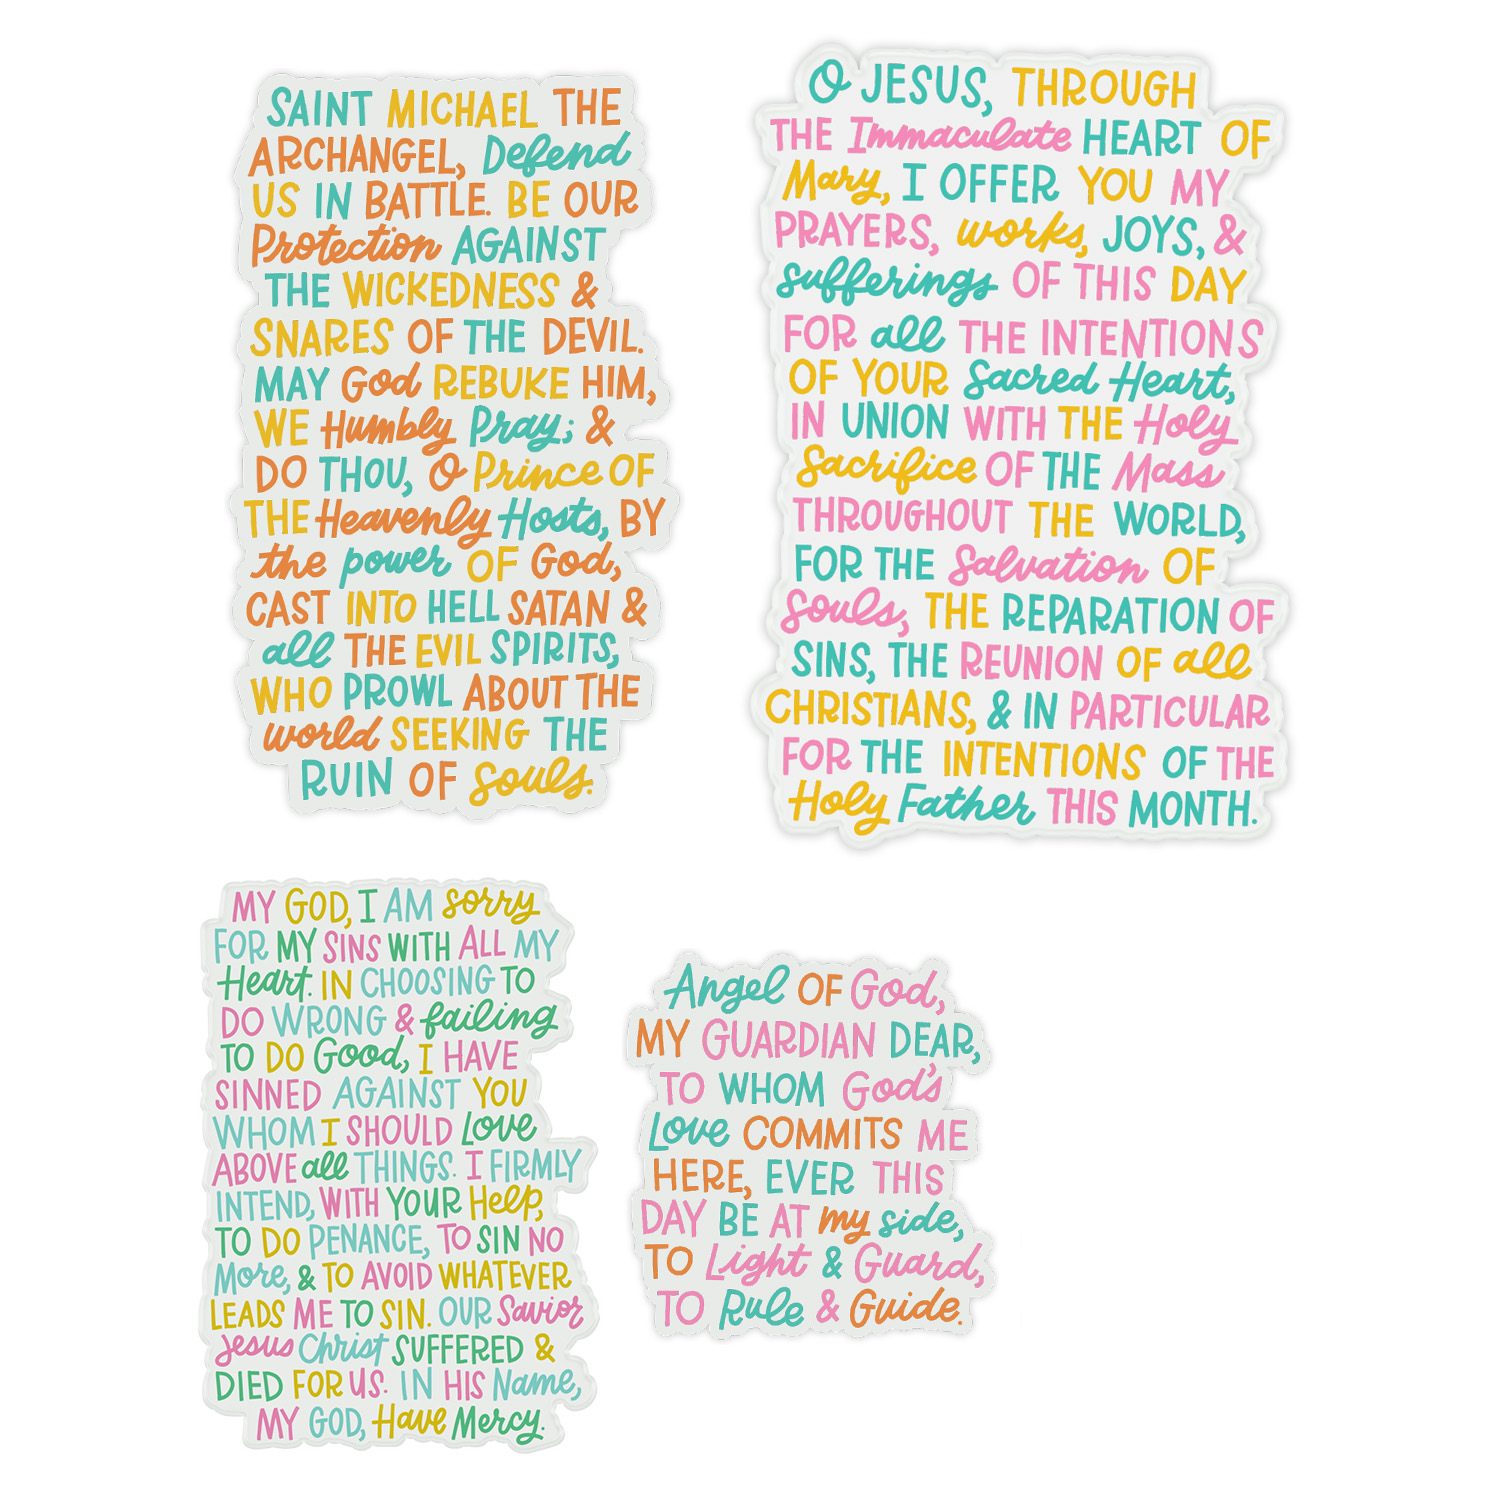 SAINT MICHAEL THE
ARCHANGEL, Defend
US IN BATTLE. BE OUR
Protection AGAINST
THE WICKEDNESS &
SNARES OF THE DEVIL.
MAY God REBUKE HIM,
WE Humbly Pray; &
DO THOU, O Prince OF
THE Heavenly Hosts, BY
the power OF God,
CAST INTO HELL SATAN &
all THE EVIL SPIRITS,
WHO PROWL ABOUT THE
world SEEKING THE
RUIN OF Souls.
O JESUS, THROUGH
THE Immaculate HEART OF
Mary, I OFFER YOU MY
PRAYERS, works, JOYS, &
sufferings OF THIS DAY
FOR all THE INTENTIONS
OF YOUR Sacred Heart,
IN UNION WITH THE Holy
Sacrifice OF THE Mass
THROUGHOUT THE WORLD,
FOR THE Salvation OF
Souls, THE REPARATION OF
SINS, THE REUNION OF all
CHRISTIANS, & IN PARTICULAR
FOR THE INTENTIONS OF THE
Holy Father THIS MONTH.
MY GOD, I AM sorry
FOR MY SINS WITH ALL MY
Heart. IN CHOOSING TO
DO WRONG & failing
TO DO Good, I HAVE
SINNED AGAINST YOU
WHOM I SHOULD Love
ABOVE all THINGS. I FIRMLY
INTEND, WITH YOUR Help,
TO DO PENANCE, TO SIN NO
More, & TO AVOID WHATEVER
LEADS ME TO SIN. OUR Savior
Jesus Christ SUFFERED &
DIED FOR US. IN HIS Name,
MY GOD, Have Mercy.
Angel OF God,
MY GUARDIAN DEAR,
TO WHOM God's
Love COMMITS ME
HERE, EVER THIS
DAY BE AT my side,
TO Light & Guard,
TO Rule & Guide.